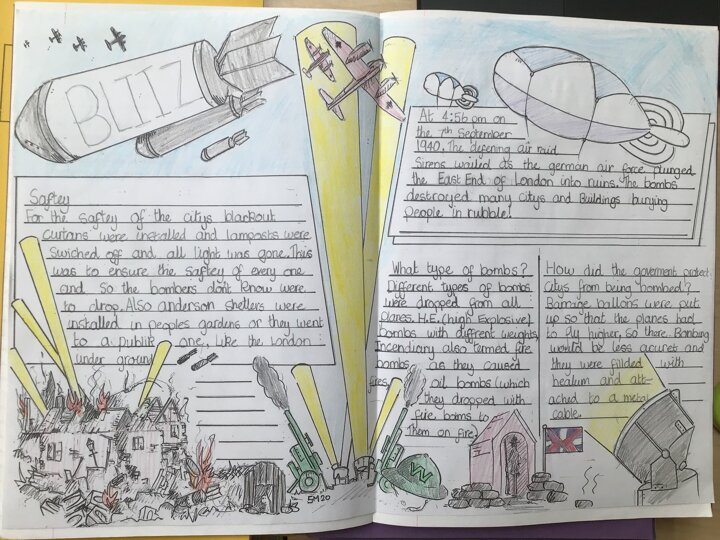 BLITZ
Saftey
For the saftey of the citys blackout
curtans were installed and lamposts were
swiched off and all light was gone. This
was to ensure the saftey of every one
and so the bombers dont know were
to drop. Also anderson shelters were
installed in peoples gardens or they went
to a public one, like the London
under ground
5M20
At 4:56 pm on
the 7th September
1940. The defening air raid
Sirens wailed as the german air force plunged
the East End of London into ruins. The bombs
destroyed many citys and Buildings burying
people in rubble!
What type of bombs?
Different types of bombs
were dropped from all
planes. H.E. (high Explosive)
bombs with diffrent weights,
Incendiary also termed fire
bombs as they caused
fires, oil bombs (which
they dropped with
fire to
Them on fire
W
How did the goverment protect
citys from being bombed?
Barrage ballons were put
up so that the planes had
to fly higher, so there Bombing
would be less acuret and
they were filded with
healium and att-
ached to a metal
cable.